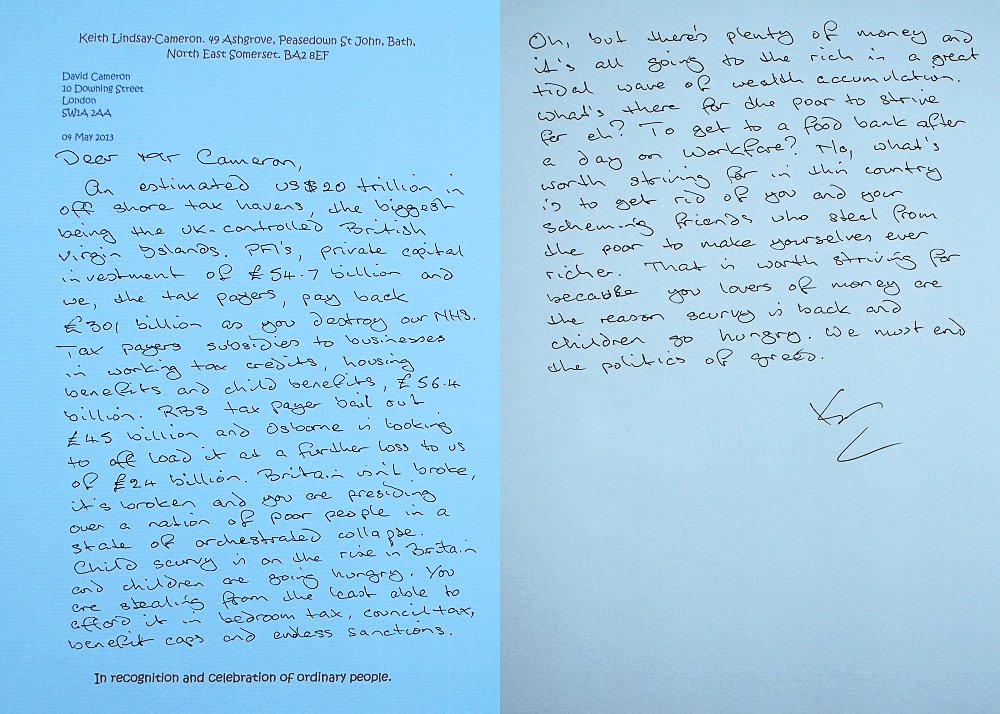 Keith Lindsay-Cameron. 49 Ashgrove, Peasedown St John, Bath,
North East Somerset. BA2 8EF
David Cameron
10 Downing Street
London
SW1A 2AA
04 May 2013
Dear Mr Cameron,
An estimated US$20 trillion in
off shore tax havens, the biggest
being the UK-controlled British
Virgin Islands. PFI's, private capital
investment of £54.7 billion and
we, the tax payers, pay back
£301 billion as you destroy our NHS.
Tax payers subsidies to businesses
in working tax credits, housing
benefits and child benefits, £56.4
billion. RBS tax payer bail out
£45 billion and Osborne is looking
to off load it at a further loss to us
of £24 billion. Britain isn't broke,
it's broken and you are presiding
over a nation of poor people in a
state of orchestrated collapse.
Child scurvy is on the rise in Britain
and children are going hungry. You
are stealing from the least able to
afford it in bedroom tax, council tax,
benefit caps and endless sanctions.
In recognition and celebration of ordinary people.
Oh, but there's plenty of money and
it's all going to the rich in a great
tidal wave of wealth accumulation.
What's there for the poor to strive
for eh? To get to a food bank after
a day on Workfare? No, what's
worth striving for in this country
is to get rid of you and your
scheming friends who steal from
the poor to make yourselves ever
richer. That is worth striving for
because you lovers of money are
the reason scurvy is back and
children go hungry. We must end
the politics of greed.